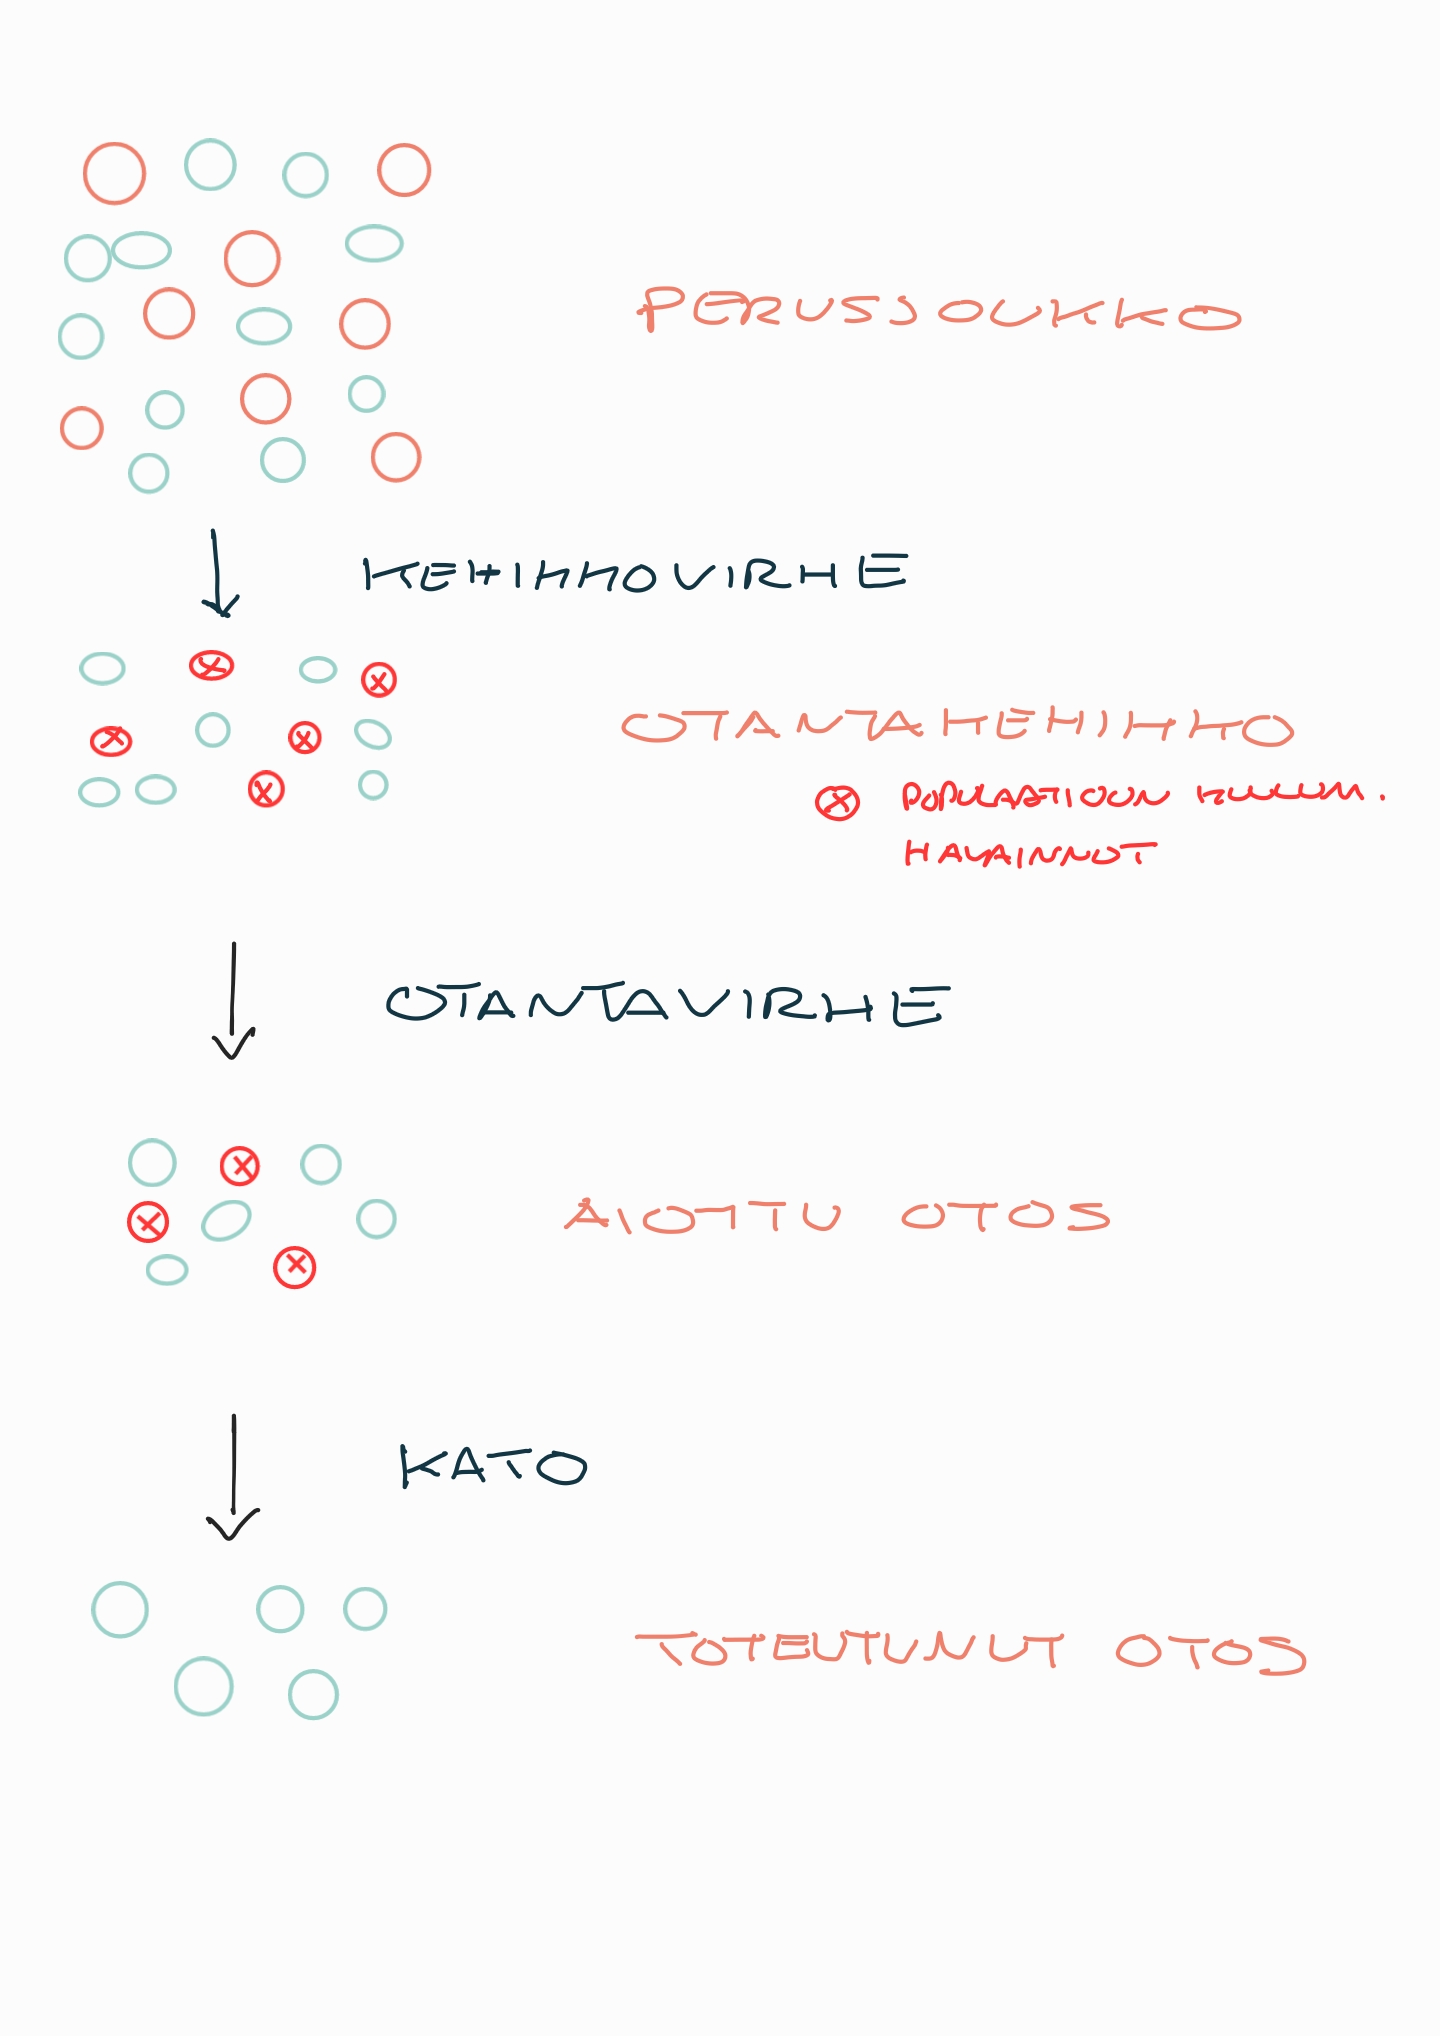 PERUSJOUKKO
KEHIKKOVIRHE
OTANTAKEHIKKO
POPULAATIOON KUULUM.
HAVAINNOT
OTANTAVIRHE
AIOTTU OTOS
KATO
TOTEUTUNUT OTOS